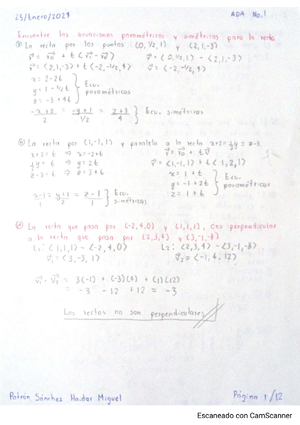 25/Enero/2021 ADA No.1
Encuentre las ecuaciones paramétricas y simétricas para la recta
La recta por los puntos (0,1/2,1) y (2,1,-3)
x = 2-2t
y = 1-1/2t
z = -3+4t
Ecu. paramétricas
Ecu. simétricas
La recta por (1,-1,1) y paralela a la recta x+2=1/2y=z-3
x+2=t ⇒ x=-2+t
1/2y=t ⇒ y=2t
z-3=t ⇒ z=3+t
x = 1+t
y = -1+2t
z = 1+t
Ecu. paramétricas
x-1 = y+1/2 = z-1/1
Ecu. simétricas
La recta que pasa por (-2,4,0) y (1,1,1), ¿es perpendicular
a la recta que pasa por (2,3,4) y (3,-1,-8)
L1: <1,1,1> - <-2,4,0> L2: <2,3,4> - <3,-1,-8>
V1 = <3,-3,1> V2 = <-1,4,12>
V1·V2 = 3(-1) + (-3)(4) + (1)(12)
= -3 -12 +12 = -3
Las rectas no son perpendiculares
Patrón Sánchez Haidar Miguel Página 1/12
Escaneado con CamScanner